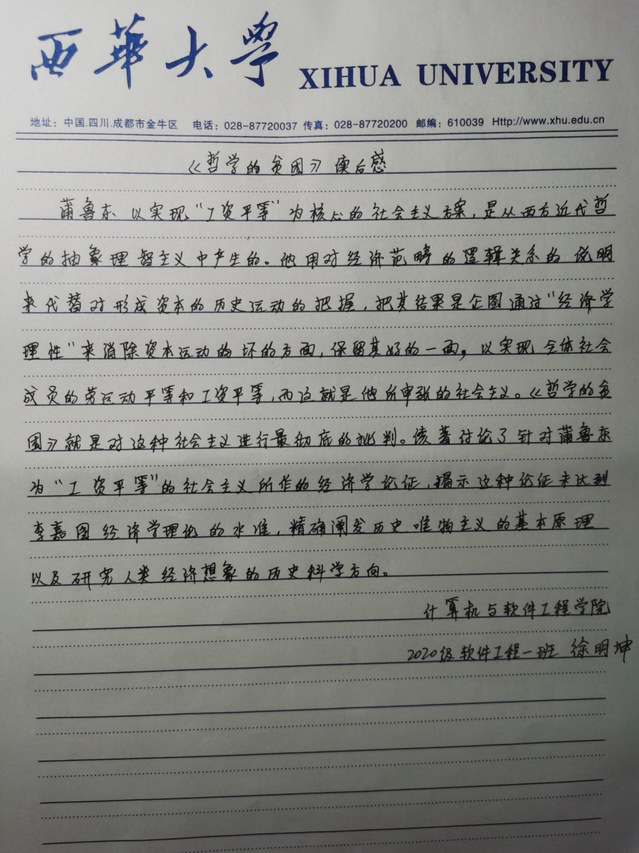 西華大學 XIHUA UNIVERSITY
地址：中国.四川.成都市金牛区 电话：028-87720037 传真：028-87720200 邮编：610039 Http://www.xhu.edu.cn
《哲学的贫困》读后感
蒲鲁东以实现“工资平等”为核心的社会主义方案，是从西方近代哲
学的抽象理智主义中产生的。他用对经济范畴的逻辑关系的说明
来代替对形成资本的历史运动的把握，把其结果是企图通过“经济学
理性”来消除资本运动的坏的方面，保留其好的一面，以实现全体社会
成员的劳动平等和工资平等，而这就是他所审张的社会主义。《哲学的贫
困》就是对这种社会主义进行最彻底的批判。该著讨论了针对蒲鲁东
为“工资平等”的社会主义所作的经济学论证，揭示这种论证未达到
李嘉图经济学理论的水准，精确阐发历史唯物主义的基本原理
以及研究人类经济想象的历史科学方向。
计算机与软件工程学院
2020级软件工程一班 徐明坤